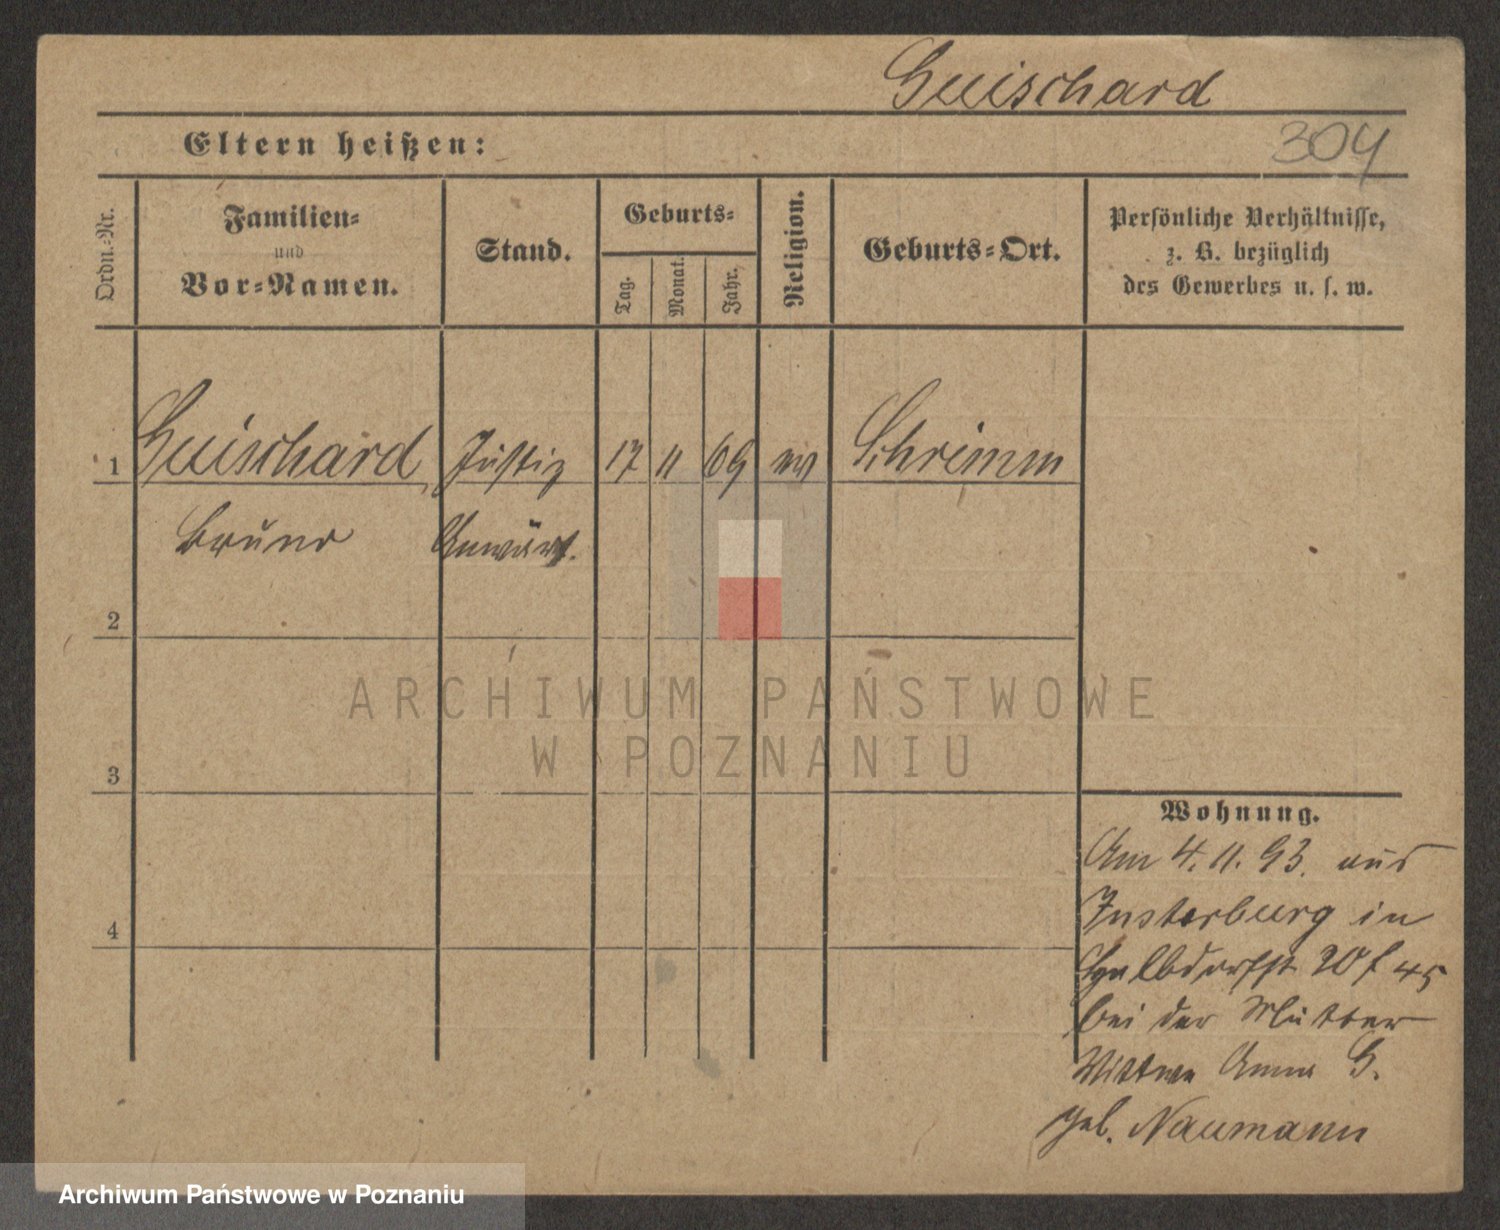 Guischard
304
Eltern heißen:
Ordn.-Nr.
Familien-
und
Vor-Namen.
Stand.
Geburts-
Tag.
Monat.
Jahr.
Religion.
Geburts-Ort.
Persönliche Verhältnisse,
z. B. bezüglich
des Gewerbes u. s. w.
1 Guischard Justiz 17 11 69 ev Schrimm
Bruno Anwärt.
2
3
4
Wohnung.
Am 4.11.93. aus
Insterburg in
20 45
bei der Mutter
Wittwe Anna G.
geb. Naumann
ARCHIWUM PAŃSTWOWE
W POZNANIU
Archiwum Państwowe w Poznaniu